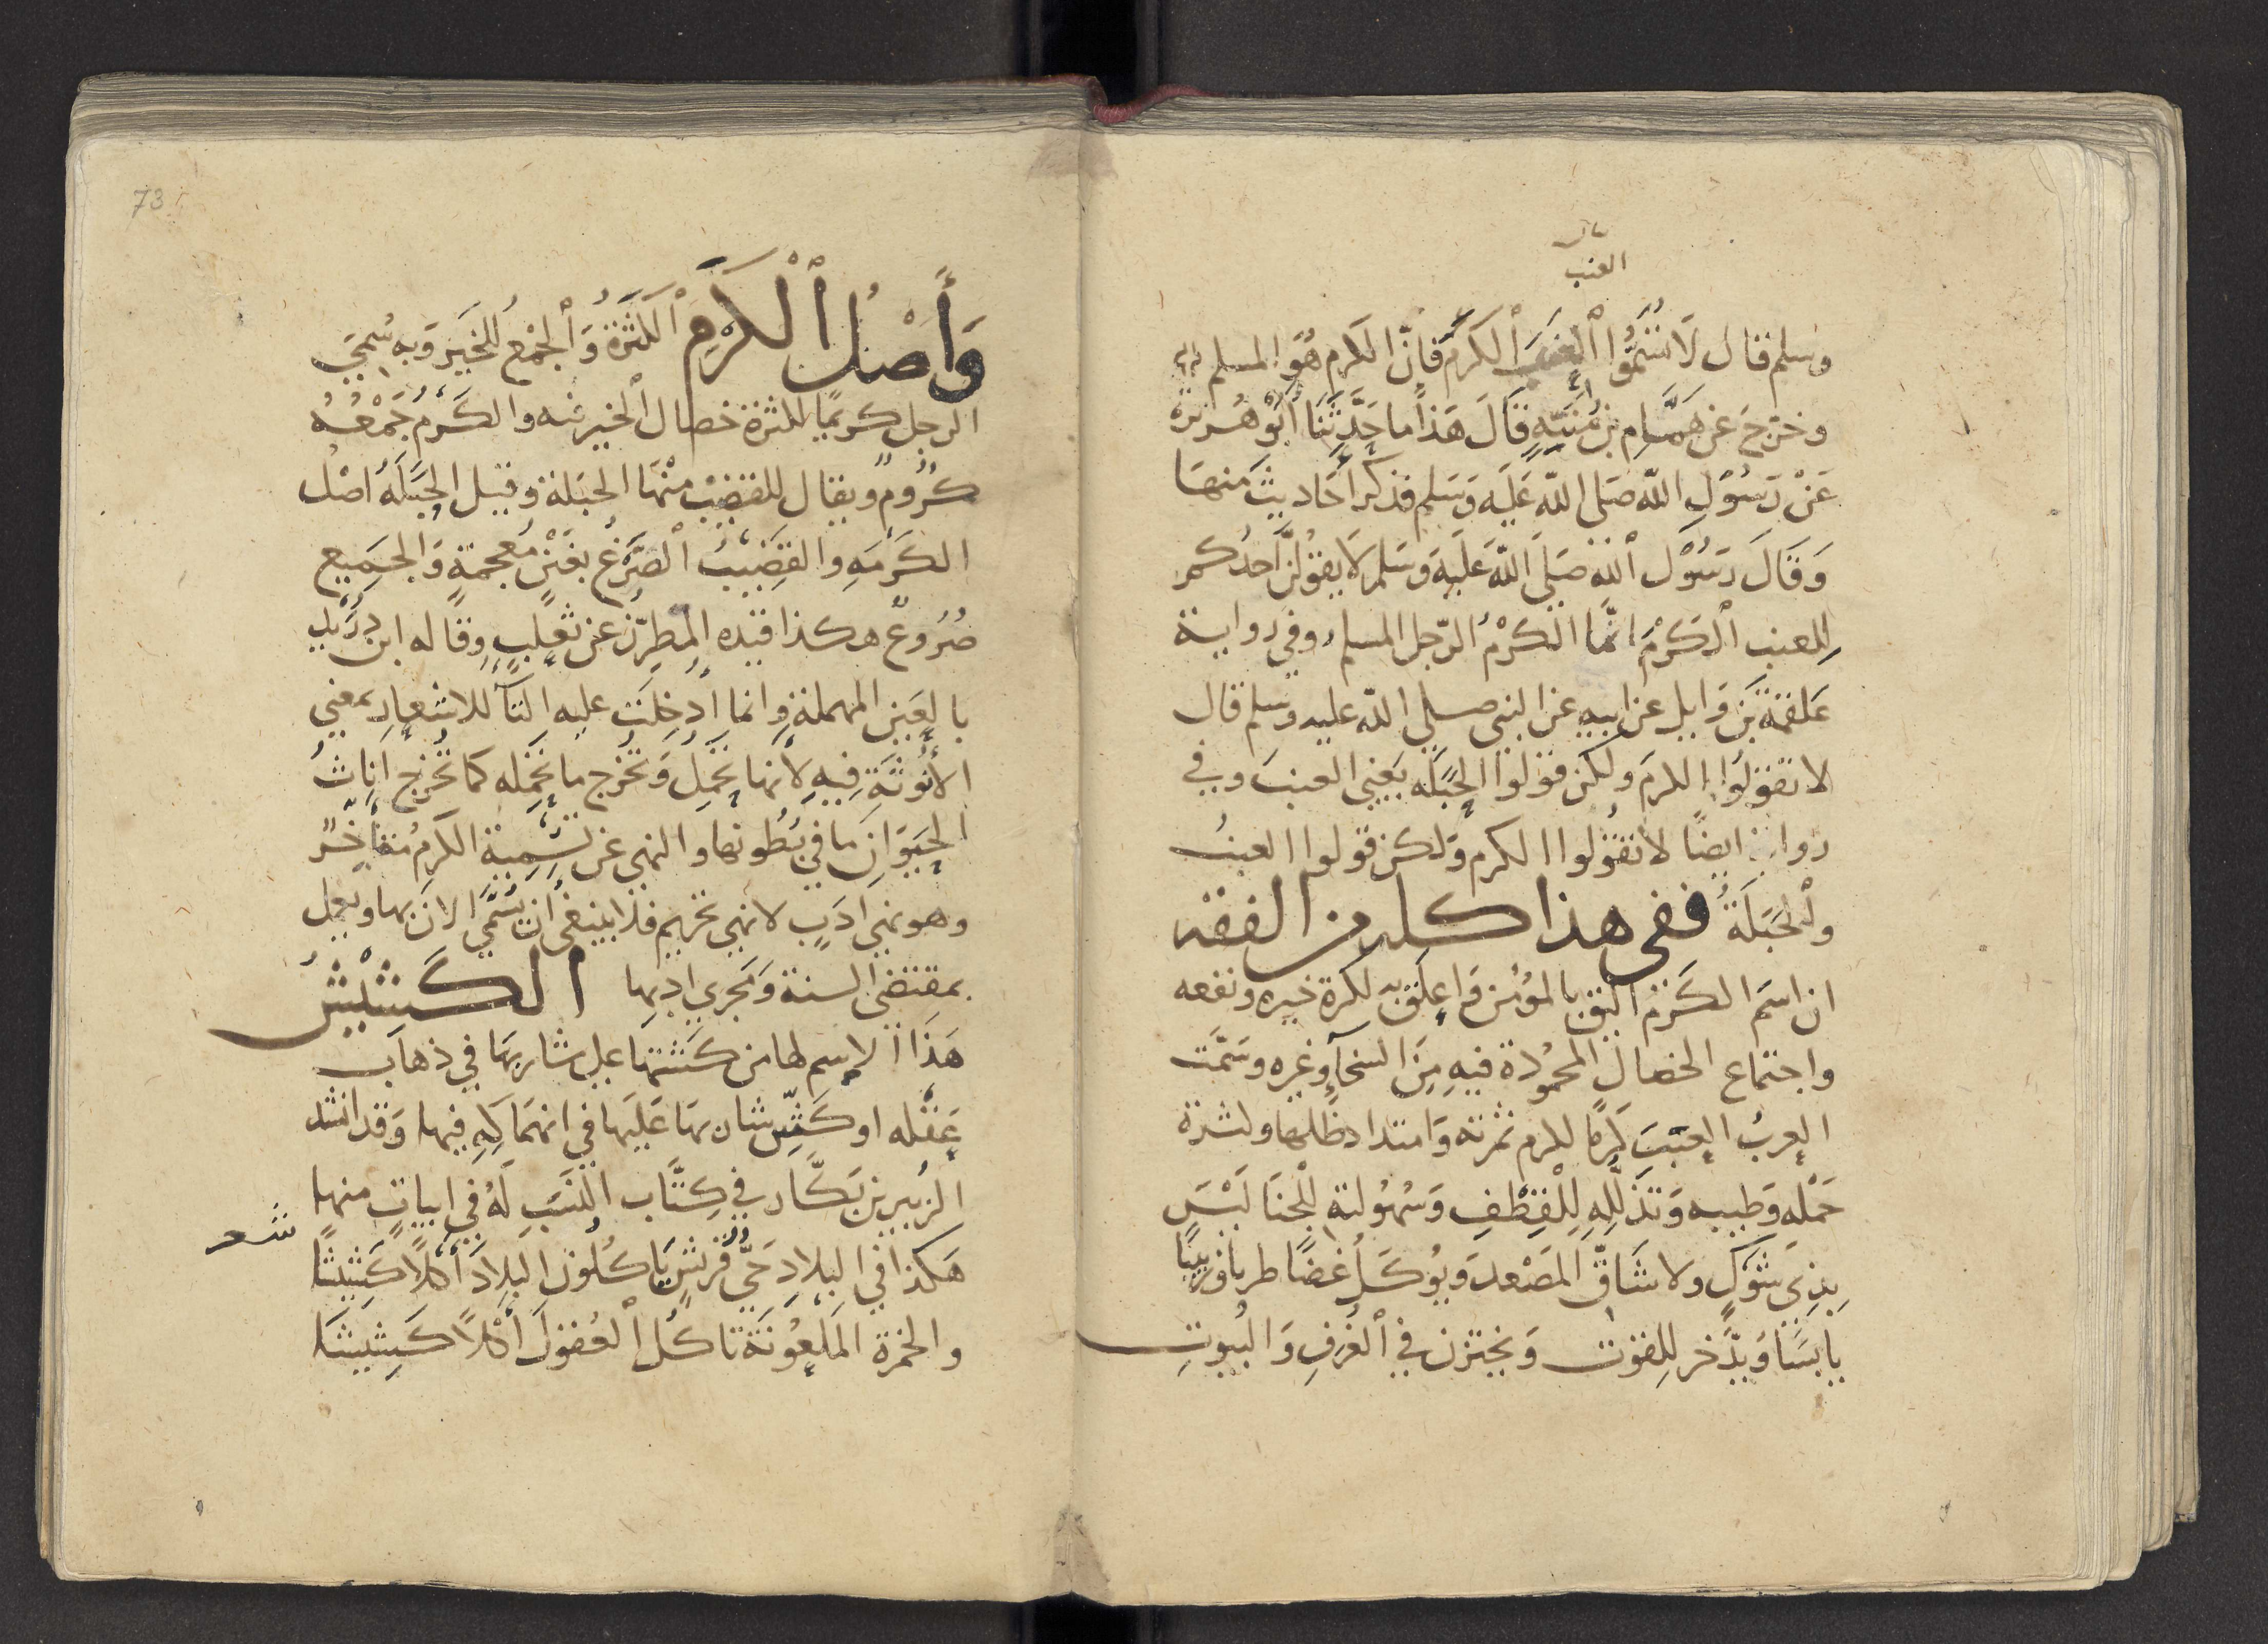 العنب
وسلم قال لَا تُسَمُّوا ٱلعِنَبَ ٱلكرمَ فإنّ الكرم هُوَ المسلم
وخرّجَ عَن هَمَّام بن مُنَبِّهٍ قَالَ هَذا ما حَدَّثَنَا أبُو هُريرة
عَنْ رَسُوْلِ اللّه صَلى اللّه عَليَه وَسَلم فذكرَ أحَاديثَ مِنهَا
وَقَالَ رَسُوْل ٱللّه صَلىَ اللّه عَليَه وَسَلم لَا يَقُولَنَّ أحَدُكم
لِلعنب ٱلكَرْمَ انّمَا الكَرْمُ الرّجل المسلم وفي رواية
عَلقمَة بن وَايل عن ابيهِ عن النبى صلي اللّه عليه وسلم قال
لا تقولوُا الكرمَ ولكن قولوا الحَبَلَه يَعني العنبَ وفي
رواية ايضًا لا تقُولوا الكرم وَلكن قولوا العنبُ
وٱلحَبَلَةُ ففى هذا كله من الفقه
ان اسَم الكَرْم اليَق بالمؤمن وَاعلَق به لكثرة خيره ونفعه
واجتماع الخصال المحمُودة فيهِ مِنَ السَخآءِ وغيره وسَمَّت
العربُ العِنَبَ كرمًا لكرم ثمرته وَامتداد ظلها ولكثرة
حَمْلِه وَطيبه وَتذَلّلِهِ لِلْقِطْفِ وَسُهُولته لِلْجنَا لَيْسَ
بِذِى شَوْكٍ ولا شَاقّ المَصْعد وَيُوكَل غَضًا طريا وزبيبًا
يابسًا وَيدَّخر للِقوت وَيختزن في ٱلغُرَفِ وَالبُيوتِ
73
وَأَصْلُ ٱلْكَرْمِ ٱلكثرةُ وَٱلجَمْعُ للخَير وَبه سُمِيَ
الرجل كريمًا لكثرة خصال ٱلخير فيه والكَرْمُ جَمْعُهُ
كُرُومٌ ويقال للقضيْب منْهَا الحَبَلة وقيل الحَبَلَهُ اصْل
الكَرْمَهِ والقَضِيْبُ ٱلصَّرْغُ بغَيْنٍ مُعجمةٍ وَالجَمِيع
صُرُوغٌ هكذا قيّده المطرّز عن ثعلبٍ وقاله ابن دُرَيْد
بالعَينِ المهملةِ وانما أُدخِلَت عليه التآ للاشعار بمعني
الأُنُوثَةِ فيهِ لأنها تحْمِلُ وَتخُرج ما تحمِله كما تُخرج اناثُ
الحَيَوَانِ ما في بُطُونها والنهى عن تسْمية الكرمُ متأخّرٌ
وهو نهىَ أدَبٍ لا نهى تحريم فلا ينبغى أن تسَمَّي الان بها ويعمل
بمقتضي السنة وَيجري ادبِها الكَشْيْشُ
هَذَا الاسم لها من كَشتها علي شاربهَا في ذهاب
عَقله او كَشّ شاربهَا عَليَها في انهمَاكِهِ فيها وَقد انشد
الزُبير بن بَكَّار في كِتَاب النّسَبِ لَهُ في ابياتٍ منها
شعر
هَكذا في البِلادِ حَيُّ قُريْشٍ يَاكُلُونَ البِلَادَ أَكْلًا كَشِيْشًا
والخمرة المَلعُونَة تاكُلُ ٱلعُقولَ أكْلًا كَشِيشًا